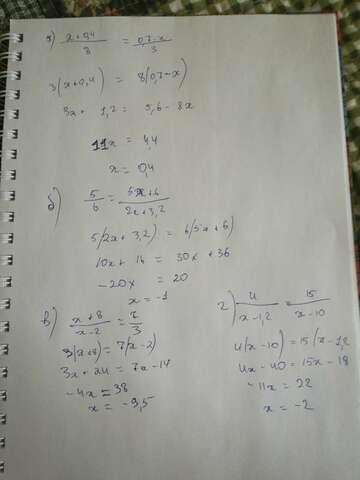 а) (x+0,4)/8 = (0,7-x)/3
3(x+0,4) = 8(0,7-x)
3x + 1,2 = 5,6 - 8x
11x = 4,4
x = 0,4
б) 5/6 = (5x+6)/(2x+3,2)
5(2x+3,2) = 6(5x+6)
10x + 16 = 30x + 36
-20x = 20
x = -1
в) (x+8)/(x-2) = 7/3
3(x+8) = 7(x-2)
3x + 24 = 7x - 14
-4x = 38
x = -9,5
г) 4/(x-1,2) = 15/(x-10)
4(x-10) = 15(x-1,2
4x - 40 = 15x - 18
-11x = 22
x = -2